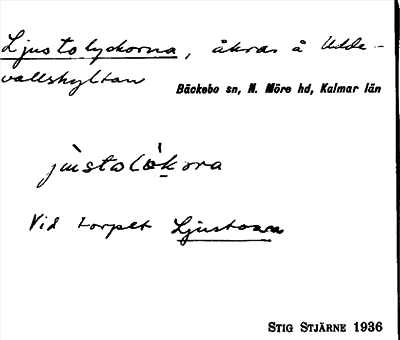 Ljustolyckorna, åkrar å Udde-
vallskyltan
Bäckebo sn, N. Möre hd, Kalmar län
Vid torpet
STIG STJÄRNE 1936